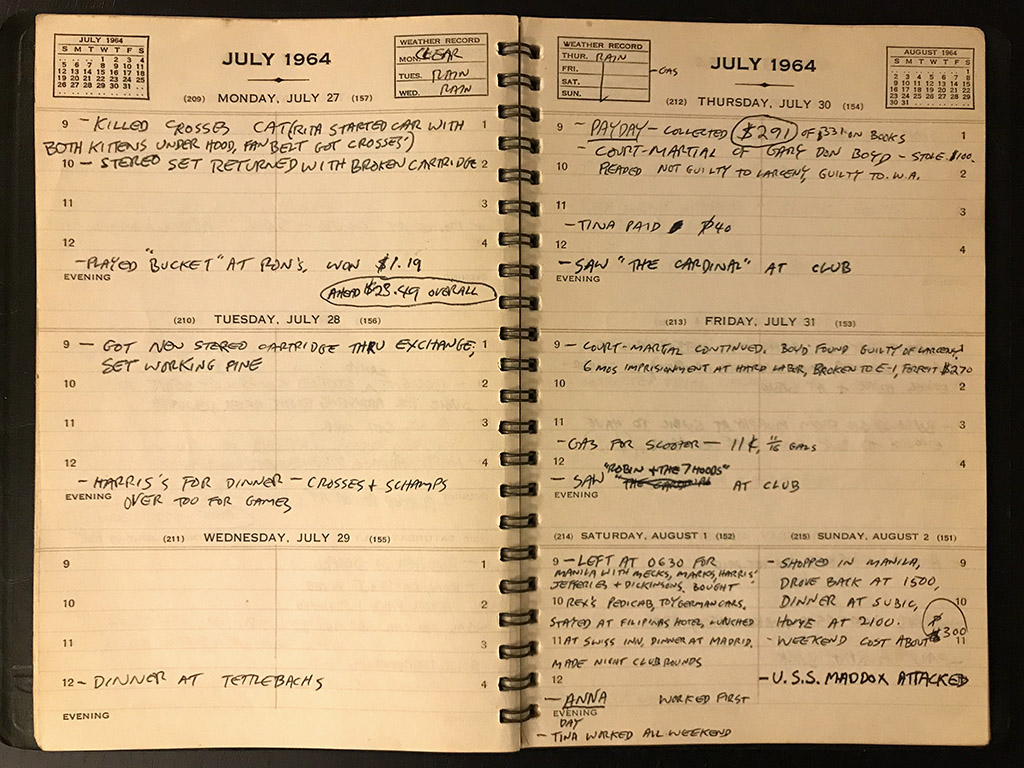 JULY 1964
S M T W T F S
1 2 3 4
5 6 7 8 9 10 11
12 13 14 15 16 17 18
19 20 21 22 23 24 25
26 27 28 29 30 31
JULY 1964
WEATHER RECORD
MON. CLEAR
TUES. RAIN
WED. RAIN
(209) MONDAY, JULY 27 (157)
9 - KILLED CROSSES CAT (RITA STARTED CAR WITH 1
BOTH KITTENS UNDER HOOD, FAN BELT GOT CROSSES')
10 - STEREO SET RETURNED WITH BROKEN CARTRIDGE 2
11 3
12 4
- PLAYED "BUCKET" AT RON'S, WON $1.19
EVENING
AHEAD $23.49 OVERALL
(210) TUESDAY, JULY 28 (156)
9 - GOT NEW STEREO CARTRIDGE THRU EXCHANGE, 1
SET WORKING FINE
10 2
11 3
12 4
- HARRIS'S FOR DINNER - CROSSES + SCHAMPS
EVENING OVER TOO FOR GAMES
(211) WEDNESDAY, JULY 29 (155)
9 1
10 2
11 3
12 - DINNER AT TETTLEBACHS 4
EVENING
WEATHER RECORD
THUR. RAIN
FRI.
SAT.
SUN.
JULY 1964
AUGUST 1964
S M T W T F S
1
2 3 4 5 6 7 8
9 10 11 12 13 14 15
16 17 18 19 20 21 22
23 24 25 26 27 28 29
30 31
(212) THURSDAY, JULY 30 (154)
9 - PAYDAY - COLLECTED $291 OF $331 ON BOOKS 1
- COURT-MARTIAL OF GARY DON BOYD - STOLE $100.
10 PLEADED NOT GUILTY TO LARCENY, GUILTY TO U.A. 2
11 3
- TINA PAID $40
12 4
- SAW "THE CARDINAL" AT CLUB
EVENING
(213) FRIDAY, JULY 31 (153)
9 - COURT-MARTIAL CONTINUED. BOYD FOUND GUILTY OF LARCENY, 1
6 MOS IMPRISIONMENT AT HARD LABOR, BROKEN TO E-1, FORFEIT $270
10 2
11 3
- GAS FOR SCOOTER - 11¢, GALS
12 "ROBIN + THE 7 HOODS" 4
- SAW AT CLUB
EVENING
(214) SATURDAY, AUGUST 1 (152)
9 - LEFT AT 0630 FOR
MANILA WITH MECKS, MARKS, HARRIS'
JEFFERIES + DICKINSONS. BOUGHT
10 REX'S PEDICAB, TOY GERMAN CARS.
STAYED AT FILIPINAS HOTEL, LUNCHED
11 AT SWISS INN, DINNER AT MADRID.
MADE NIGHT CLUB ROUNDS
12
- ANNA WORKED FIRST
EVENING
DAY
- TINA WORKED ALL WEEKEND
(215) SUNDAY, AUGUST 2 (151)
- SHOPPED IN MANILA, 9
DROVE BACK AT 1500,
DINNER AT SUBIC, 10
HOME AT 2100.
- WEEKEND COST ABOUT $300 11
- U.S.S. MADDOX ATTACKED